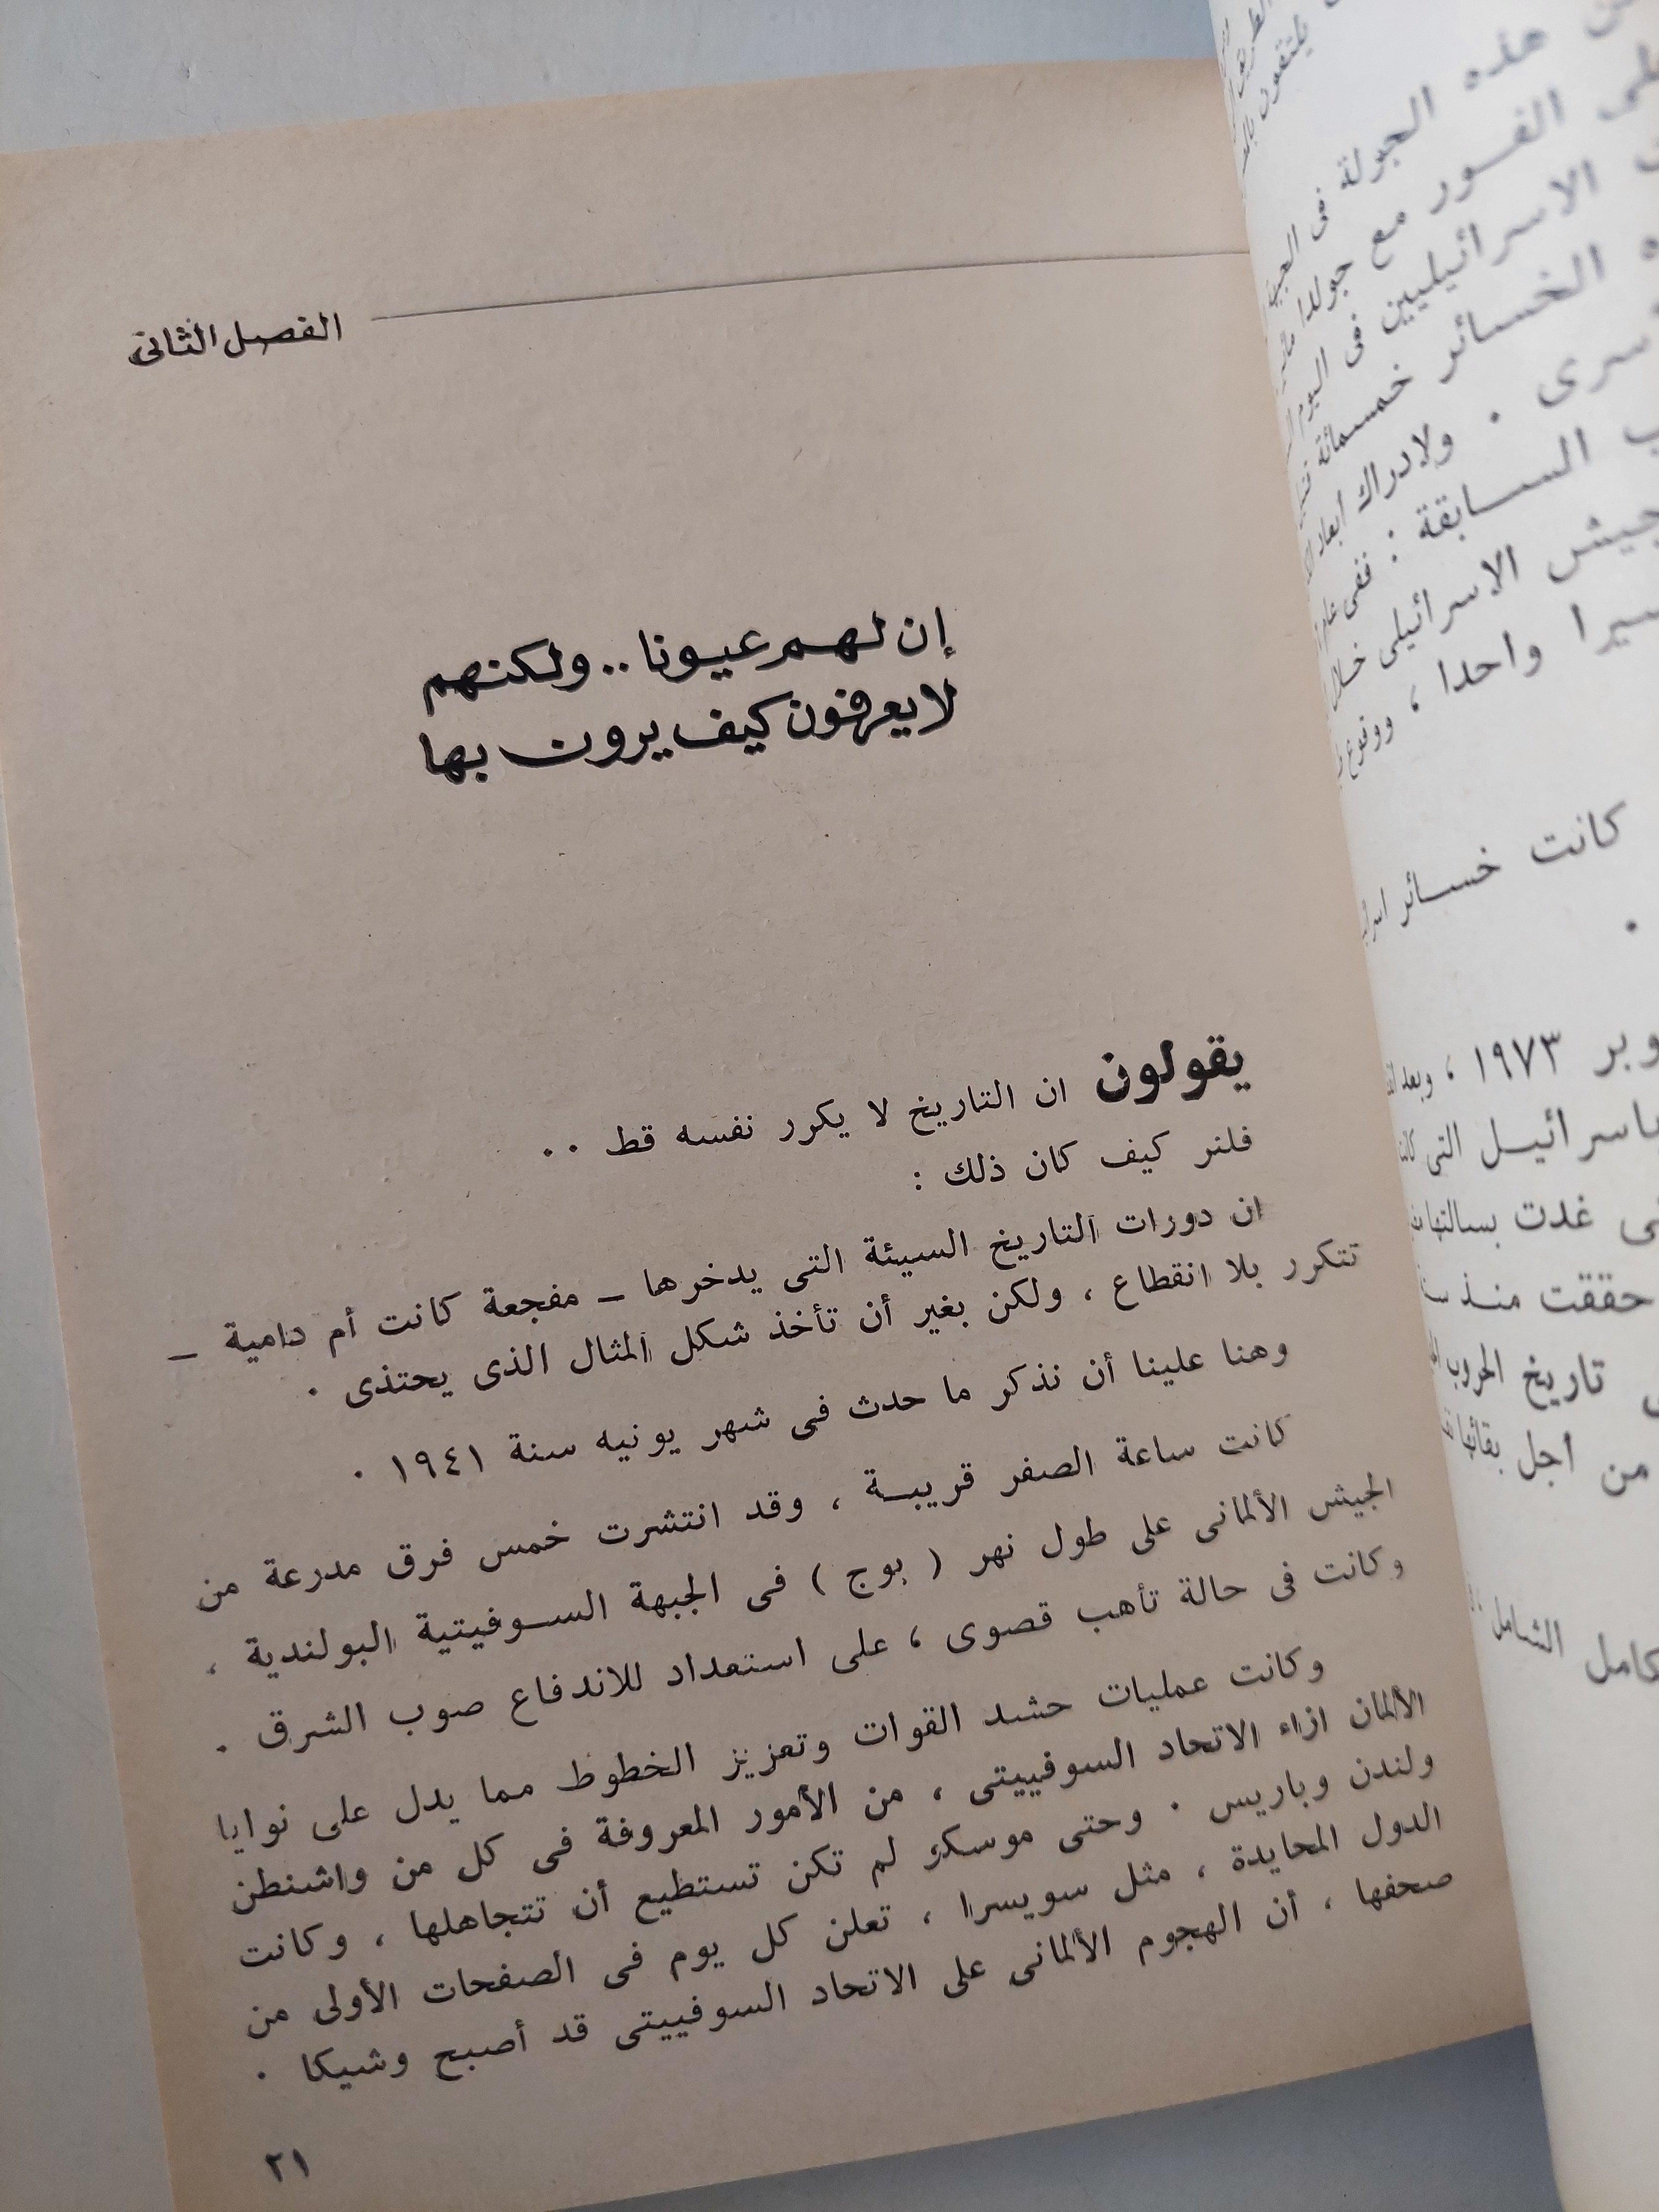 الفصل الثانى
إن لهم عيونا .. ولكنهم
لا يعرفون كيف يرون بها
يقولون ان التاريخ لا يكرر نفسه قط ..
فلنر كيف كان ذلك :
ان دورات التاريخ السيئة التى يدخرها – مفجعة كانت أم دامية –
تتكرر بلا انقطاع ، ولكن بغير أن تأخذ شكل المثال الذى يحتذى .
وهنا علينا أن نذكر ما حدث فى شهر يونيه سنة ١٩٤١ .
كانت ساعة الصفر قريبة ، وقد انتشرت خمس فرق مدرعة من
الجيش الألمانى على طول نهر ( بوج ) فى الجبهة السوفيتية البولندية ،
وكانت فى حالة تأهب قصوى ، على استعداد للاندفاع صوب الشرق .
وكانت عمليات حشد القوات وتعزيز الخطوط مما يدل على نوايا
الألمان ازاء الاتحاد السوفييتى ، من الأمور المعروفة فى كل من واشنطن
ولندن وباريس . وحتى موسكو لم تكن تستطيع أن تتجاهلها ، وكانت
الدول المحايدة ، مثل سويسرا ، تعلن كل يوم فى الصفحات الأولى من
صحفها ، أن الهجوم الألمانى على الاتحاد السوفييتى قد أصبح وشيكا .
٢١
هذه الجولة فى
الفور مع جولدا
الاسرائيليين فى اليوم
الخسائر خمسمائة
. ولادراك أبعاد
السابقة : ففى عام
الاسرائيلى خلال
واحدا ، ووقوع
كانت خسائر
.
١٩٧٣ ، وبعد
التى كانت
غدت بسالتها
حققت منذ
تاريخ الحروب
من أجل بقائها
الشامل